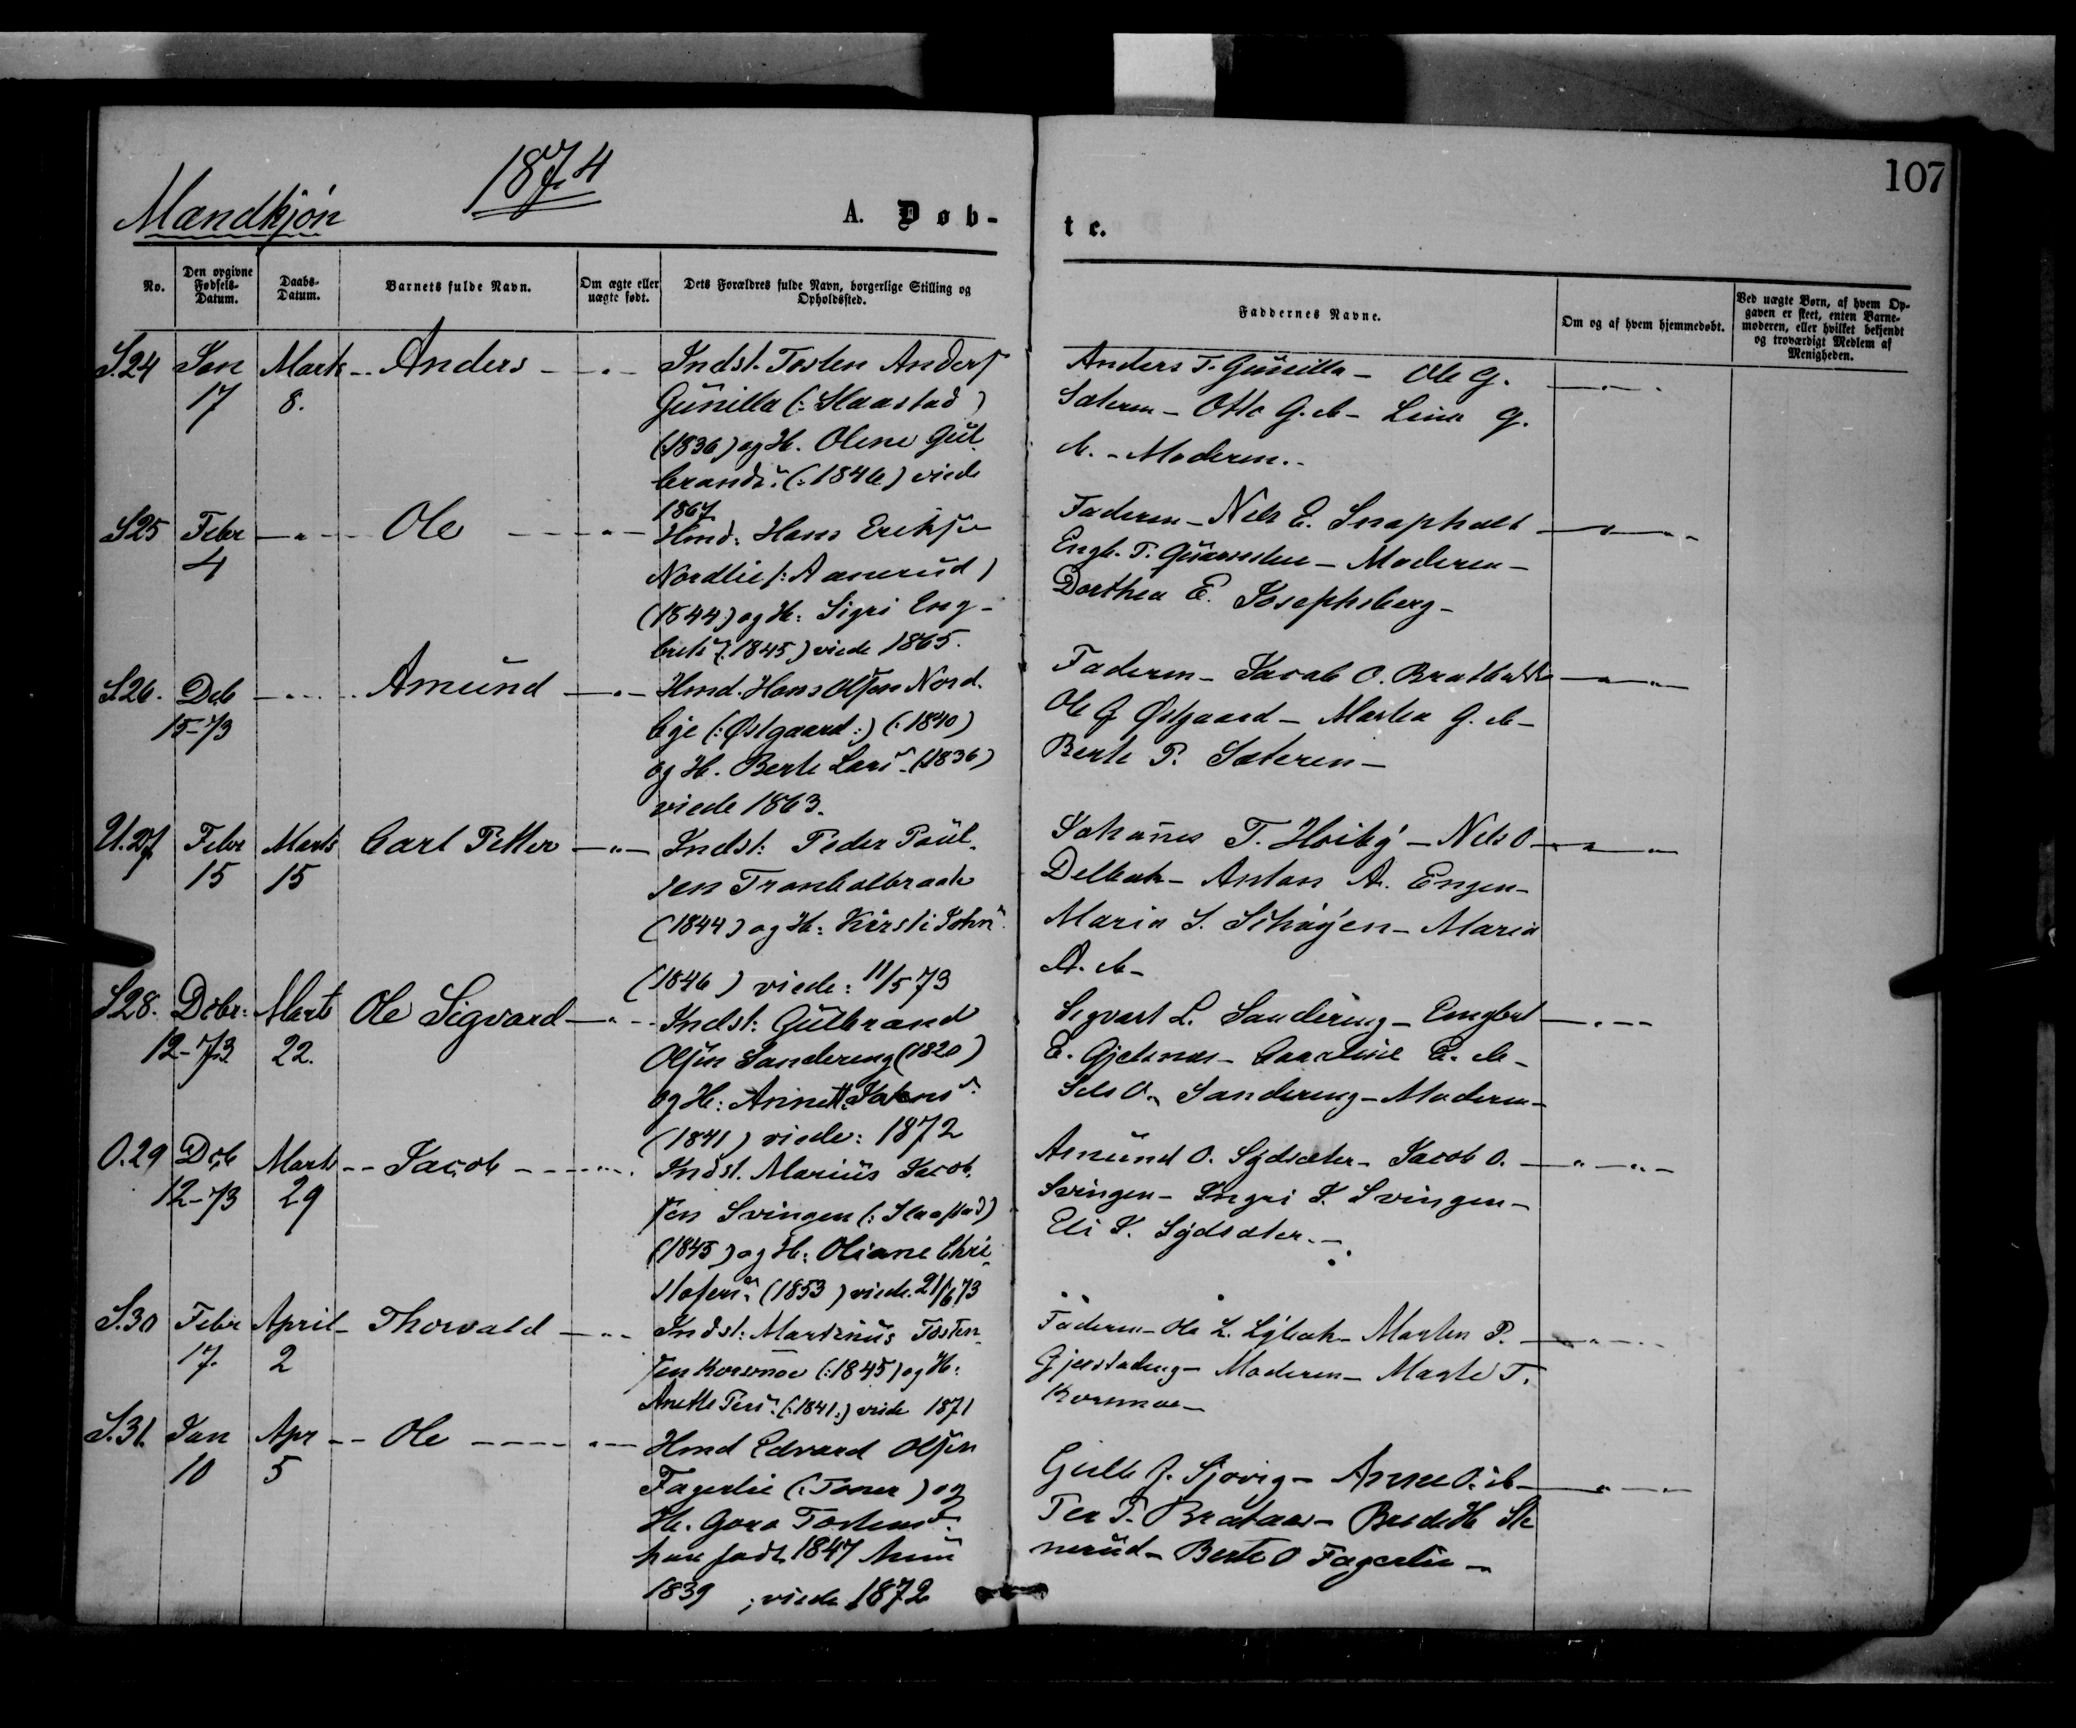 107
1874
Mandkjön
A. Døb-
te.
No.
Den opgivne Fødsels-Datum.
Daabs-Datum.
Barnets fulde Navn.
Om ægte eller uægte født.
Dets Forældres fulde Navn, borgerlige Stilling og Opholdssted.
Faddernes Navne.
Om og af hvem hjemmedøbt.
Ved uægte Børn, af hvem Opgaven er skeet, enten Barnemoderen, eller hvilket bekjendt og troværdigt Medlem af Menigheden.
S.24 Jan Marts Anders Indst. Tosten Anders
17 8. Gunilla (: Haastad)
(:1836) og H. Olene Gul
brands. (:1846) viede
1867
Anders T. Gunilla - Ole G.
Sæteren - Otto G. - Lina G.
Moderen.
S25 Febr Ole Hmd: Hans Eriksen
4 Nordlie (: Aanerud)
(1844) og H: Sigri Eng-
brets (1845) viede 1865.
Faderen - Nils E. Snaphalt
Engb. T. - Moderen -
Dorthea E. Josephsberg -
S26. Deb Amund Hmd. Hans Olsen Nord.
15-73 bye (: Østgaard :) (:1840)
og H. Berte Lars. (1836)
viede 1863.
Faderen - Jacob O. Bratbakke
Ole G Østgaard - Martea G.
Berte P. Sæteren -
U.27 Febr Marts Carl Petter Indst: Peder Paul.
15 15 sen Tronbolbrach
(1844) og H: Kirsti John
(1846) viede: 11/5 73
Johañes T. Höiby - Nels O
Delbak - Anton A. Engen -
Maria S. - Maria
A.
S28. Debr: Marts Ole Sigvard Indst: Gulbrand
12-73 22. Olsen Sandereng (1820)
og H: Annette Johns
(1841) viede: 1872
Segvart L. Sandereng - Engbret
E. Gjeknes - Caroline E.
O. Sandereng - Moderen -
O.29 Deb Marts Jacob Indst. Marius Jacob.
12-73 29 sen Svingen (: Haastad)
(1845) og H: Oliane Chri
stofers. (1853) viede 21/6 73
Amund O. Sydsæter - Jacob O.
Svingen - Ingri J. Svingen -
Eli J. Sydsæter. -
S.30 Febr April Thorvald Indst: Martinus Tosten
17. 2 sen Korsmoe (:1845) og H:
Anette Pers. (:1841:) viede 1871
Faderen - Ole L. Lybak - Marten P.
Gjerstadeng - Moderen - Marte T.
Korsmoe -
S.31. Jan Apr Ole Hmd Edvard Olsen
10 5 Fagerlie (: Toner) og
H. Goro Tostens.
han født 1847 hun
1839 ; viede 1872
Gulb J. Sjovig - Anne O.
Per T. Brataas - Brede H
nerud - Berte O Fagerlie -